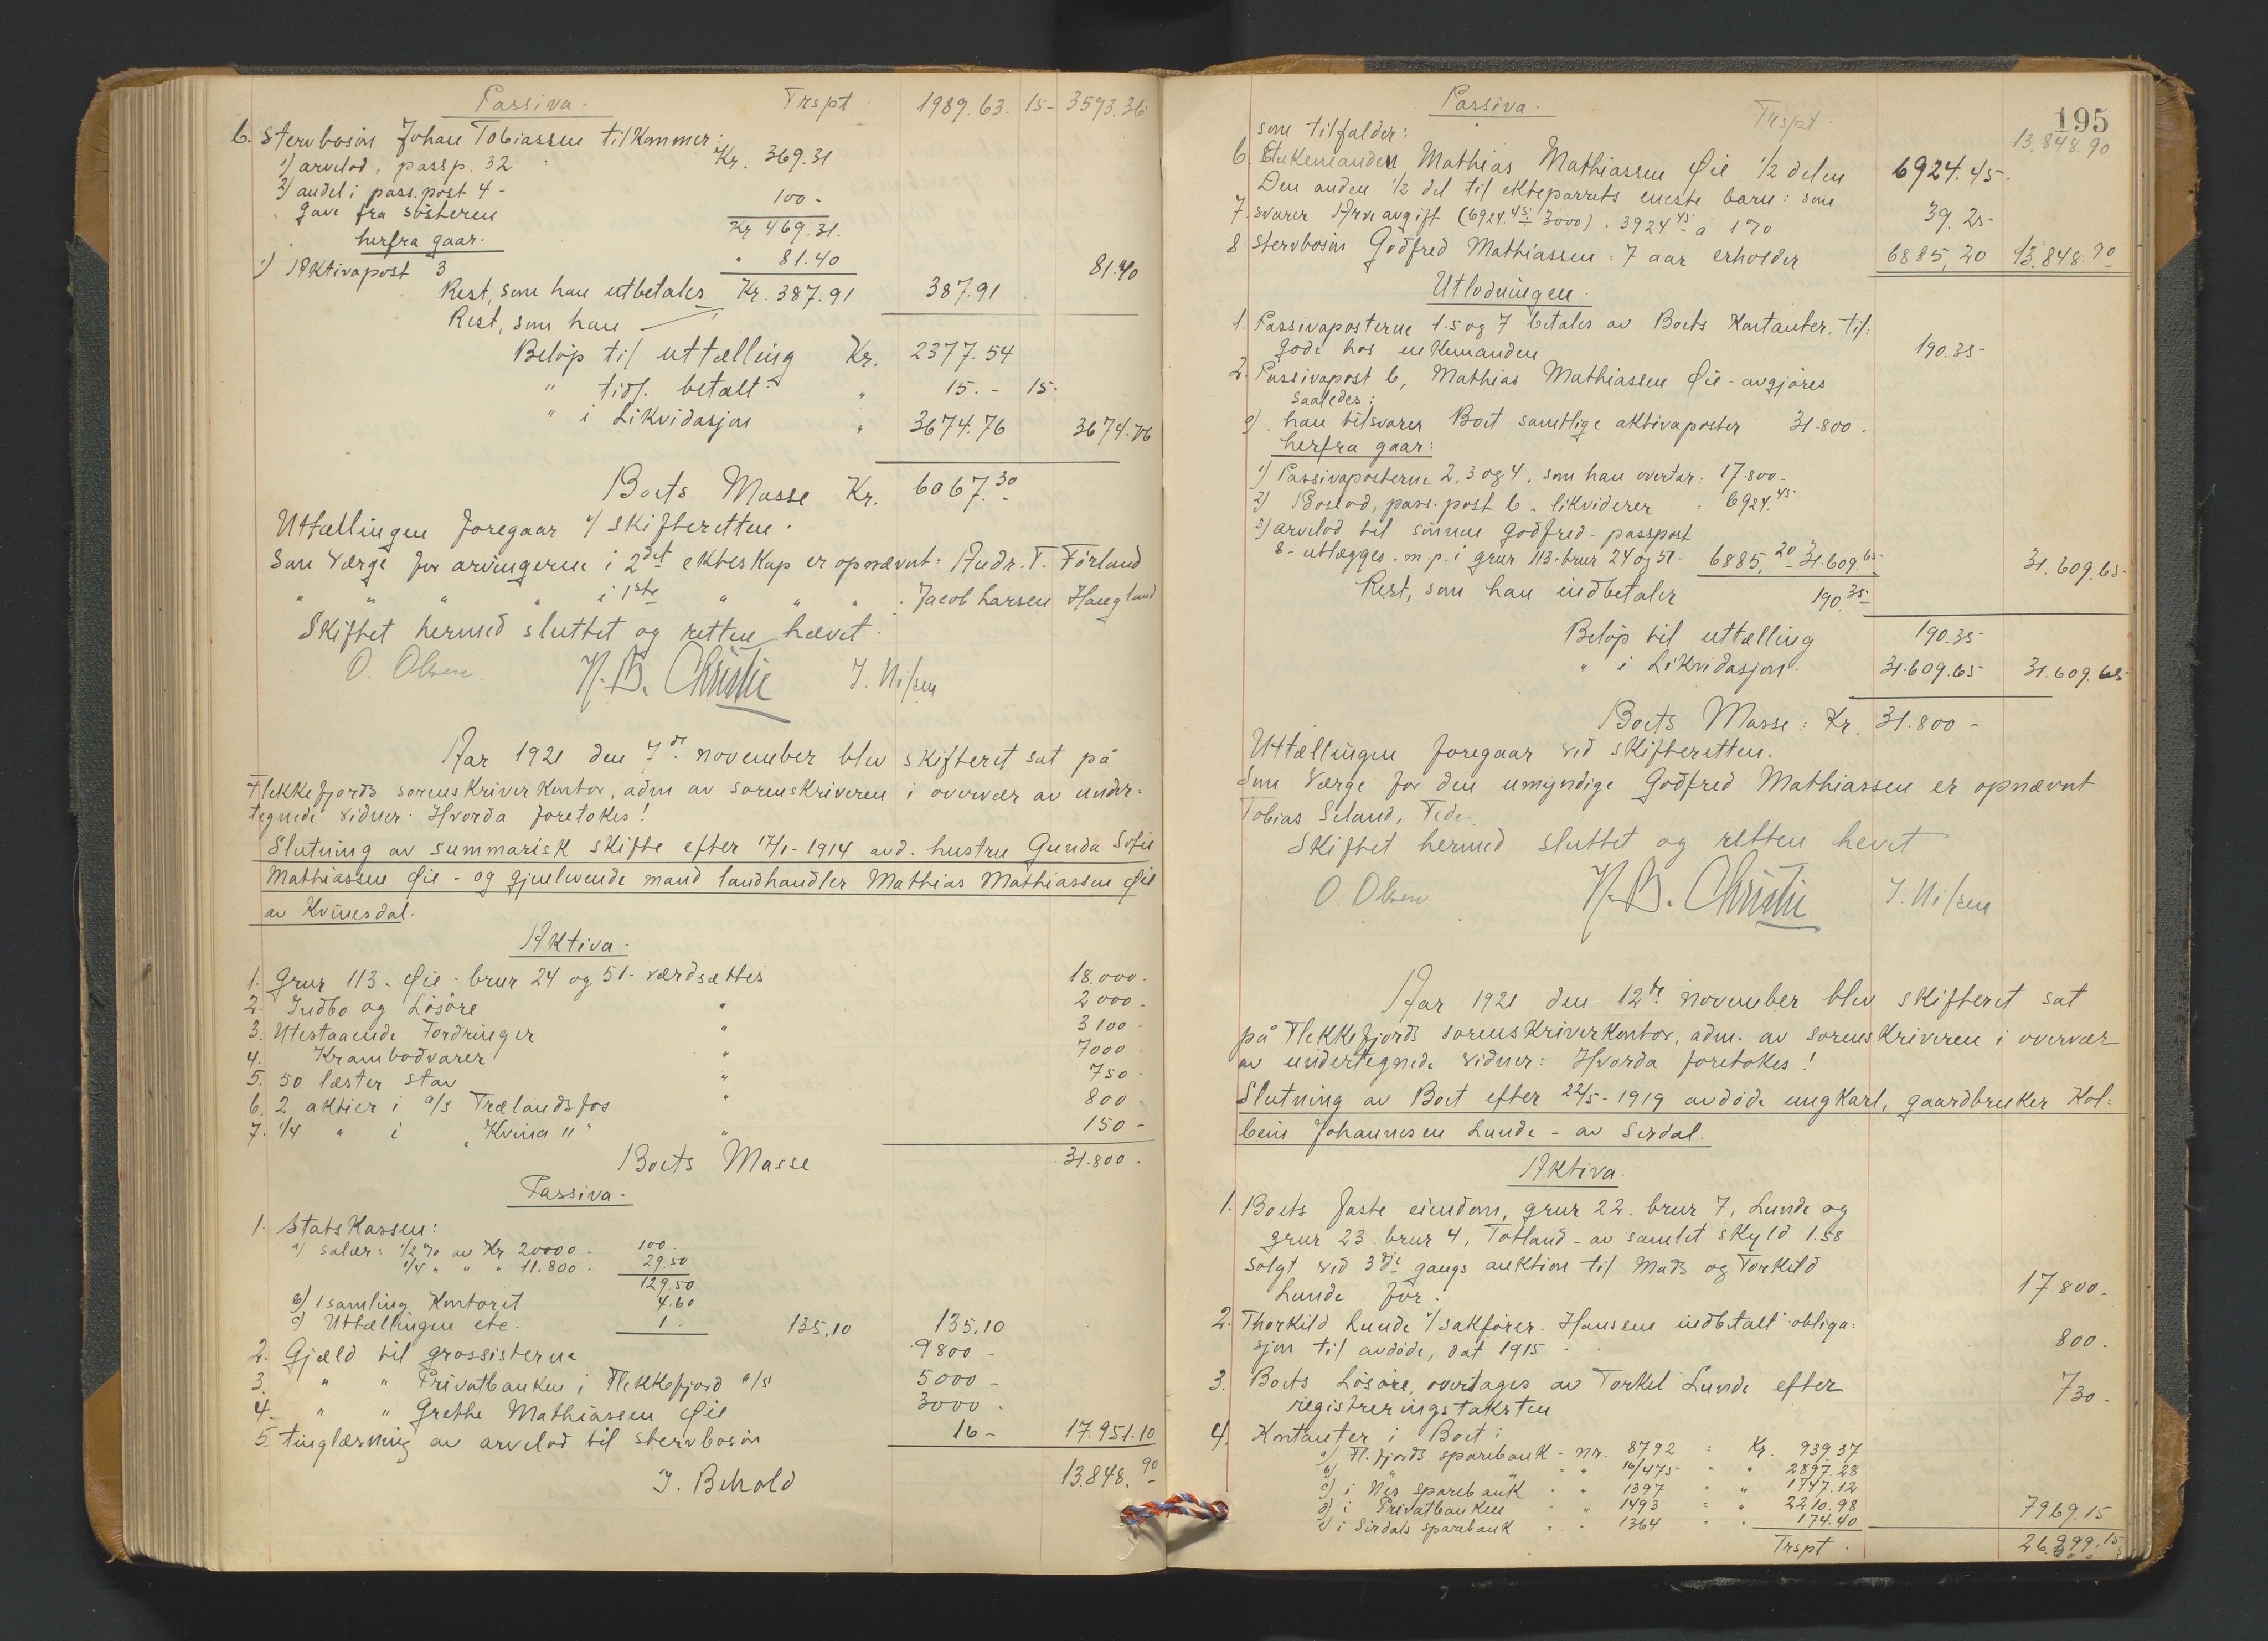 Passiva. Trspt 1989.63. 15- 3593.36
6. Stervbosön Johan Tobiassen tilkommer:
1) arvelod, passp. 32 Kr. 369.31
2) andel i pass.post 4 -
gave fra søsteren 100 -
herfra gaar. Kr 469.31.
1) Aktivapost 3 " 81.40 81.40
Rest, som han utbetales Kr. 387.91 387.91
Rest, som han
Beløp til uttælling Kr. 2377.54
" tidl. betalt " 15.- 15-
" i Likvidasjon " 3674.76 3674.76
Boets Masse Kr. 6067.30
Uttællingen foregaar v/ skifteretten.
Som Værge for arvingerne i 2det ekteskap er opnævnt. Andr. T. Førland
" " " " i 1ste " " " : Jacob Larsen Haugland
Skiftet hermed sluttet og retten hævet.
O. Olsen. N.B. Christie J. Nilsen
Aar 1921 den 7de november blev skifteret sat på
Flekkefjords sorenskriverkontor, adm av sorenskriveren i overvær av under-
tegnede vidner. Hvorda foretokes!
Slutning av summarisk skifte efter 17/1-1914 avd. hustru Gunda Sofie
Mathiassen Øie - og gjenlevende mand landhandler Mathias Mathiassen Øie
av Kvinesdal.
Aktiva.
1. Grnr 113. Øie - brnr 24 og 51- værdsættes 18.000-
2. Indbo og Løsøre " 2000-
3. Utestaaende Fordringer " 3100-
4. Krambodvarer " 7000-
5. 50 læster stav " 750-
6. 2 aktier i a/s Trælandsfos " 800-
7. 1/4 " i " Kvina " " 150-
Boets Masse 31.800-
Passiva.
1. Statskassen:
a) salær: 1/2 % av Kr 20000. 100.
1/4 " " " 11.800. 29.50
129.50
b) 1 samling Kontoret 4.60
c) Uttællingen etc. 1. 135,10 135,10
2. Gjæld til grossisterne 9800-
3. " " Privatbanken i Flekkefjord a/s 5000-
4. " " Grethe Mathiassen Øie 3000-
5. tinglæsning av arvelod til stervbosön 16- 17.951.10
I. Behold 13.848.90
195
Passiva. Trspt. 13.848.90
som tilfalder:
6. Enkemanden Mathias Mathiassen Øie 1/2 delen 6924.45-
Den anden 1/2 del til ekteparrets eneste barn: som
7. svarer Arveavgift (6924.45 - 3000). 3924.45 à 1% 39.25-
8 stervbosön Godfred Mathiassen: 7 aar erholder 6885,20 13.848.90
Utlodningen.
1. Passivaposterne 1.5 og 7 betales av Boets Kontanter, til:
gode hos enkemanden 190.35-
2. Passivapost 6, Mathias Mathiassen Øie - avgjøres
saaledes:
a). han tilsvarer Boet samtlige aktivaposter 31.800.
herfra gaar:
1) Passivaposterne 2, 3 og 4, som han overtar: 17.800-
2) Boslod, pass. post 6. likviderer : 6924.45
3) arvelod til sønnen Godfred - passpost
8- utlægges. m.p. i grnr 113-brnr 24 og 51- 6885,20 31.609.65 31.609.65-
Rest, som han indbetaler 190.35
Beløp til uttælling 190.35
" i Likvidasjon. 31.609.65 31.609.65
Boets Masse: Kr. 31.800-
Uttællingen foregaar ved skifteretten.
Som Værge for den umyndige Godfred Mathiassen er opnævnt
Tobias Seland, Fede.
Skiftet hermed sluttet og retten hevet
O. Olsen N.B. Christie J. Nilsen
Aar 1921 den 12te november blev skifteret sat
på Flekkefjords sorenskriverkontor, adm. av sorenskriveren i overvær
av undertegnede vidner: Hvorda foretokes!
Slutning av Boet efter 22/5-1919 avdøde ungkarl, gaardbruker Kol:
bein Johannesen Lunde - av Sirdal.
Aktiva.
1. Boets faste eiendom, grnr 22. brnr 7, Lunde og
grnr 23. brnr 4, Totland - av samlet skyld 1.58
solgt ved 3dje gangs auktion til Mads og Torkild
Lunde for. 17.800-
2. Thorkild Lunde v/sakfører. Hansen indbetalt obliga:
sjon til avdøde, dat 1915 800.
3. Boets Løsøre, overtages av Torkel Lunde efter
registreringstaksten 730-
4. Kontanter i Boet:
a) Fl.fjords sparebank - nr. 8792 = Kr. 939.37
b) " " " " 16/475 " " 2897.28
c) i Nes sparebank " " 1397 = " 1747.12
d) i Privatbanken " " 1493 = " 2210.98
e) i Sirdals sparebank " " 1364 = " 174.40 7969.15
Trspt. 26.999.15